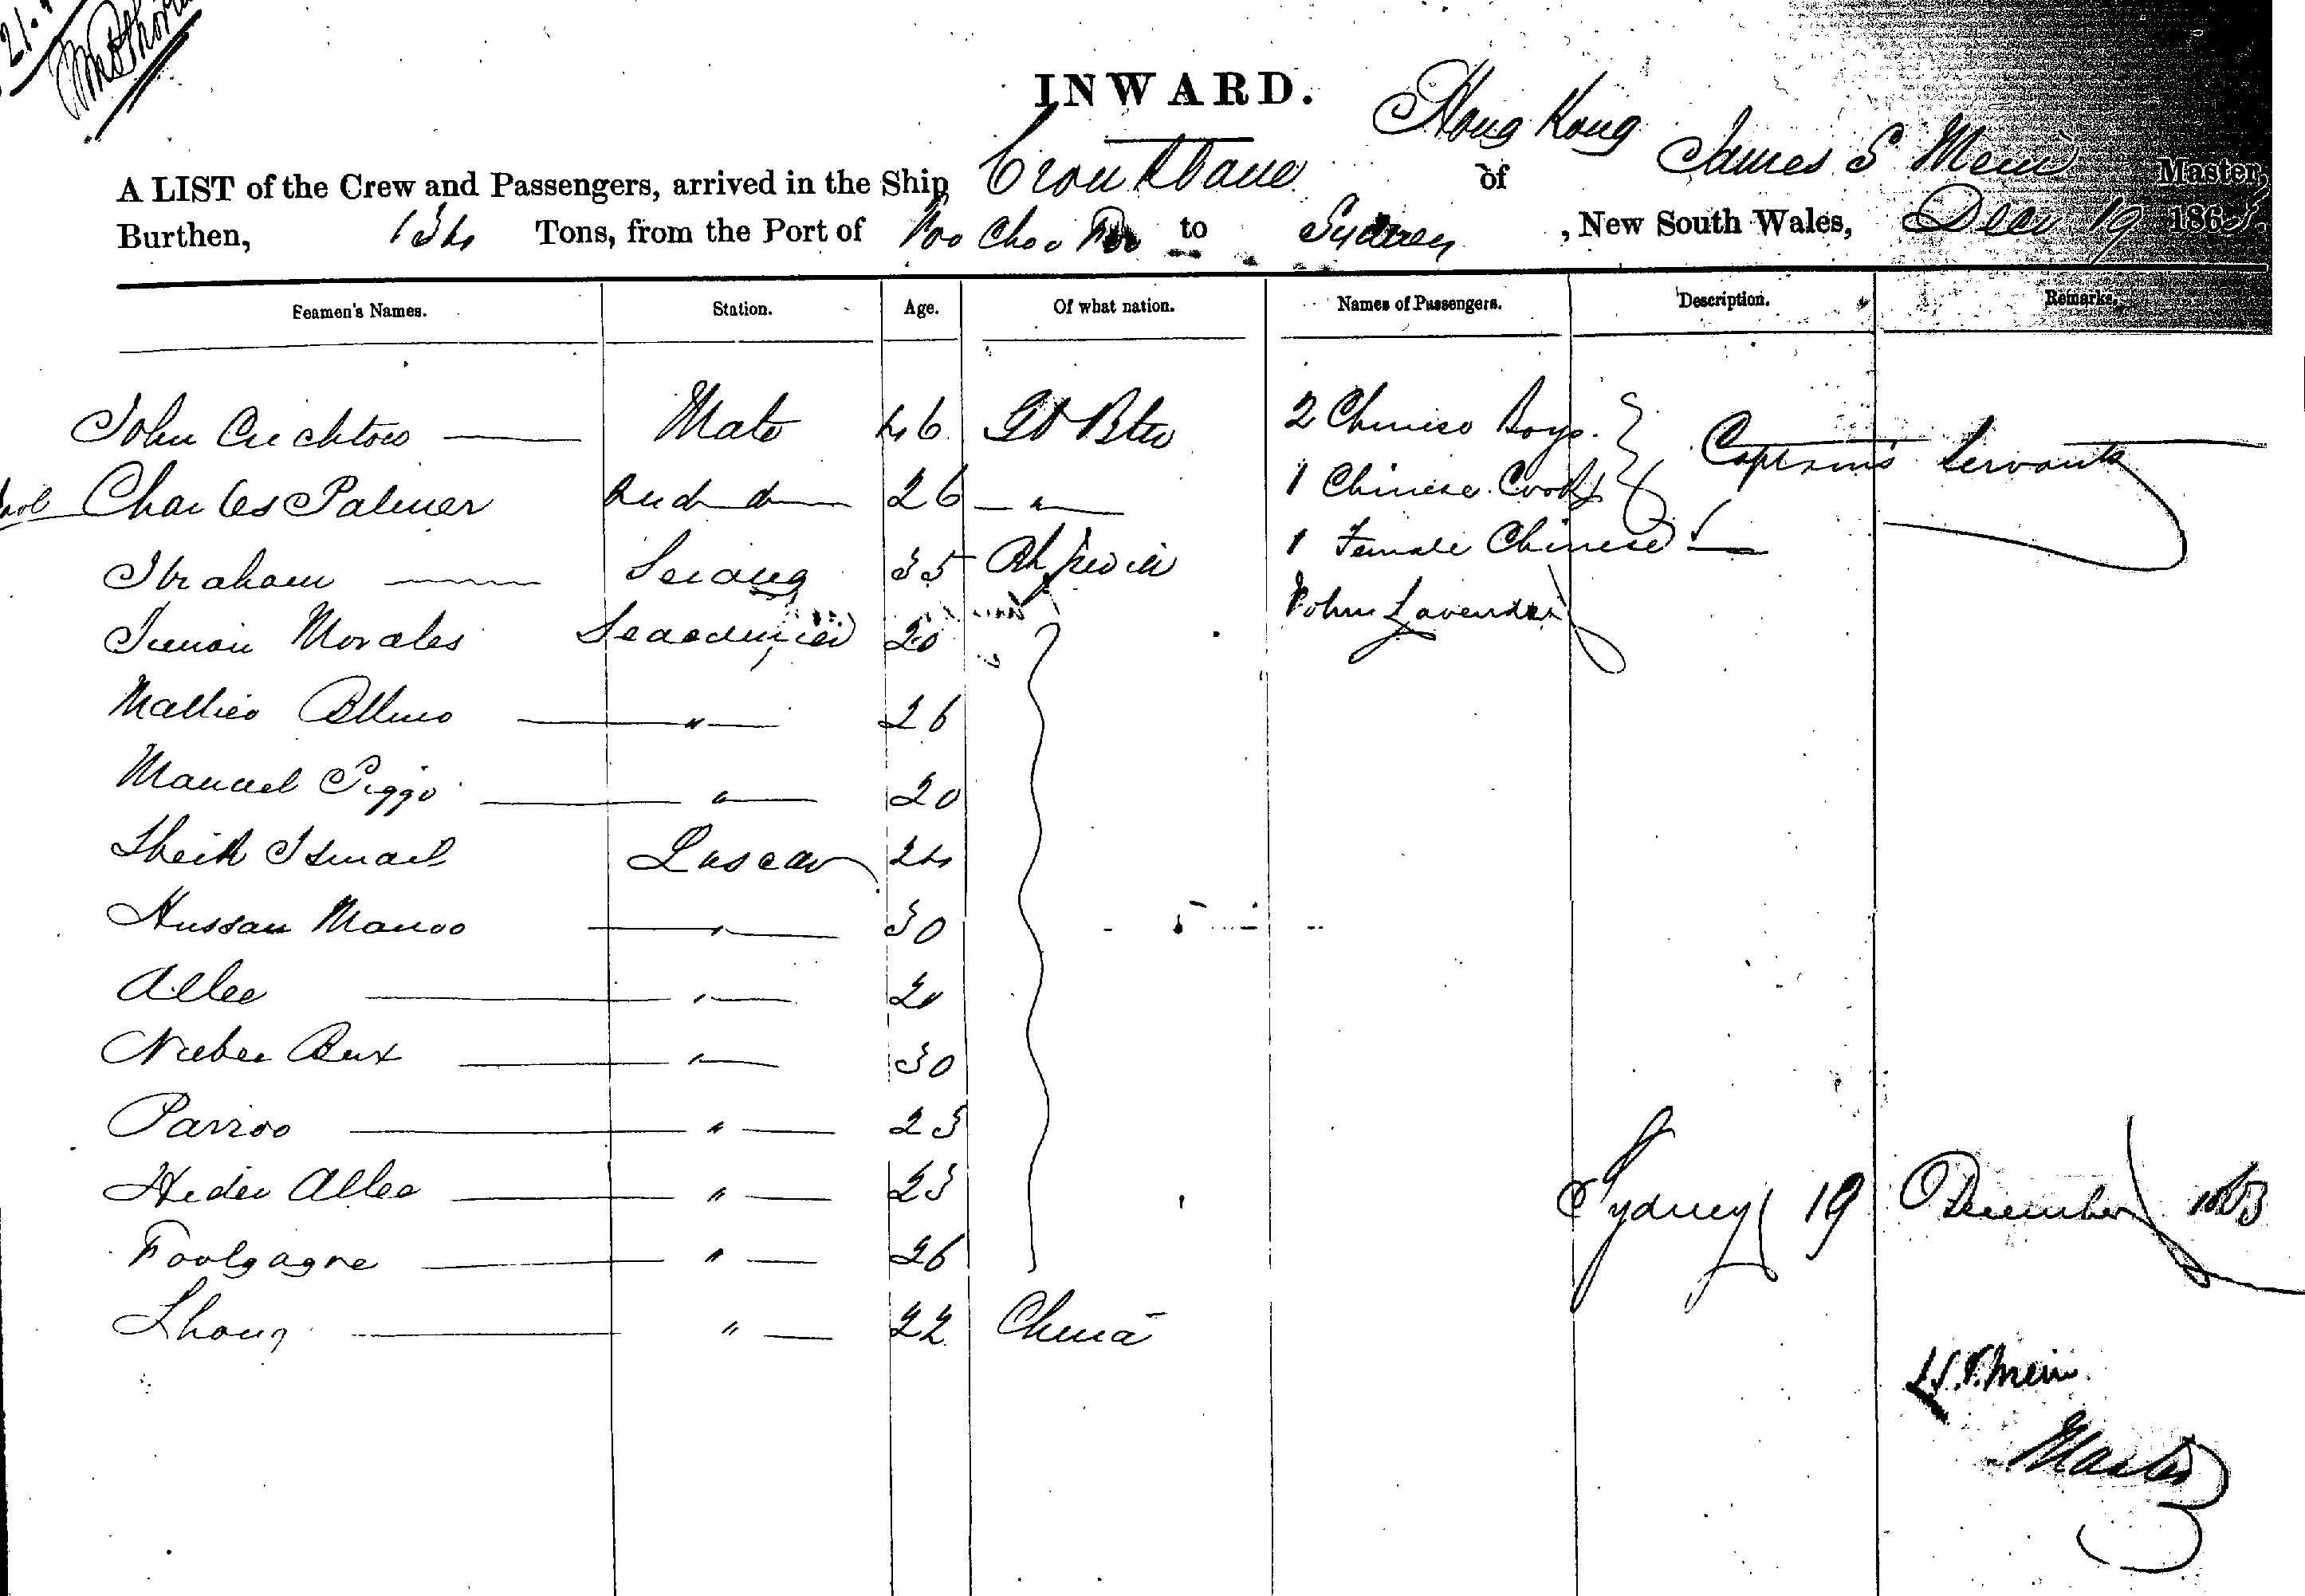 INWARD.
Hong Kong
A LIST of the Crew and Passengers, arrived in the Ship of James S Mein Master,
Burthen, 134 Tons, from the Port of Foo Choo Foo to Sydney, New South Wales, Decr 19 1863.
Seamen's Names. Station. Age. Of what nation. Names of Passengers. Description. Remarks.
John Crichton Mate 46 Gt Btn 2 Chinese Boys. Captain's Servants
Charles Palmer 2nd do 26 " 1 Chinese Cook
Ibraham Serang 35 1 Female Chinese
Morales Seacunnie 20 John Lavender
" 26
Manuel Piggo " 20
Sheik Ismail Lascar 24
Hussan Manoo " 30
Allee " 20
Bux " 30
Parroo " 23
Hider Allee " 23 Sydney 19 December 1863
Foolgagne " 26
" 22 China
J. S. Mein
Master